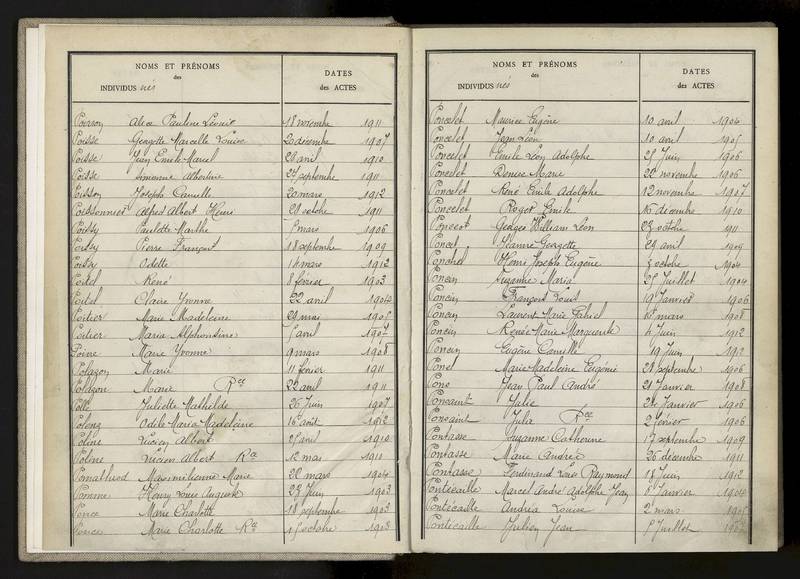 NOMS ET PRÉNOMS
des
INDIVIDUS nés
DATES
des ACTES
Poisson Alice Pauline Léonie 18 novembre 1911
Poisse Georgette Marcelle Louise 20 décembre 1907
Poisse Jean Emile Marcel 28 avril 1910
Poisse Simonne Albertine 27 septembre 1911
Poisson Joseph Camille 20 mars 1912
Poissonnier Alfred Albert Henri 20 octobre 1911
Poissy Paulette Marthe 5 mars 1906
Poissy Pierre François 18 septembre 1909
Poissy Odette 14 mars 1912
Poitel René 8 février 1903
Poitel Claire Yvonne 22 avril 1904
Poitier Marie Madeleine 29 mai 1905
Poitier Maria Alphonsine 5 avril 1907
Poivre Marie Yvonne 9 mars 1908
Polazon Marie 11 février 1911
Polazon Marie Rce 22 avril 1911
Polle Juliette Mathilde 26 Juin 1907
Polenz Odile Maria Madeleine 16 août 1912
Poline Lucien Albert 25 avril 1910
Poline Lucien Albert Rce 12 mai 1910
Maximilienne Marie 20 mars 1904
Pomme Henry Louis Auguste 23 Juin 1903
Ponce Marie Charlotte 18 septembre 1903
Ponce Marie Charlotte Rce 15 octobre 1903
NOMS ET PRÉNOMS
des
INDIVIDUS nés
DATES
des ACTES
Poncelet Maurice Eugène 10 avril 1904
Poncelet Jean Léon 10 avril 1905
Poncelet Emile Léon Adolphe 25 Juin 1906
Poncelet Denise Marie 20 novembre 1906
Poncelet René Emile Adolphe 12 novembre 1907
Poncelet Roger Emile 16 décembre 1910
Poncelet Georges William Léon 23 octobre 1911
Poncet Jeanne Georgette 29 avril 1905
Ponchel Henri Joseph Eugène 3 octobre 1904
Poncin Suzanne Maria 25 Juillet 1904
Poncin François Louis 19 Janvier 1906
Poncin Laurent Marie 18 mars 1908
Poncin Renée Marie Marguerite 4 Juin 1912
Poncin Eugène Camille 19 Juin 1912
Ponel Marie Madeleine Eugénie 28 septembre 1906
Pons Jean Paul André 21 Janvier 1908
Ponsaint Julie 24 Janvier 1906
Ponsaint Julie Rce 2 février 1906
Pontasse Suzanne Catherine 17 septembre 1909
Pontasse Marie Andrée 26 décembre 1911
Pontasse Ferdinand Louis Raymond 18 Juin 1912
Pontécaille Marcel André Adolphe Jean 8 Janvier 1904
Pontécaille Andréa Louise 2 mars 1905
Pontécaille Julien Jean 5 Juillet